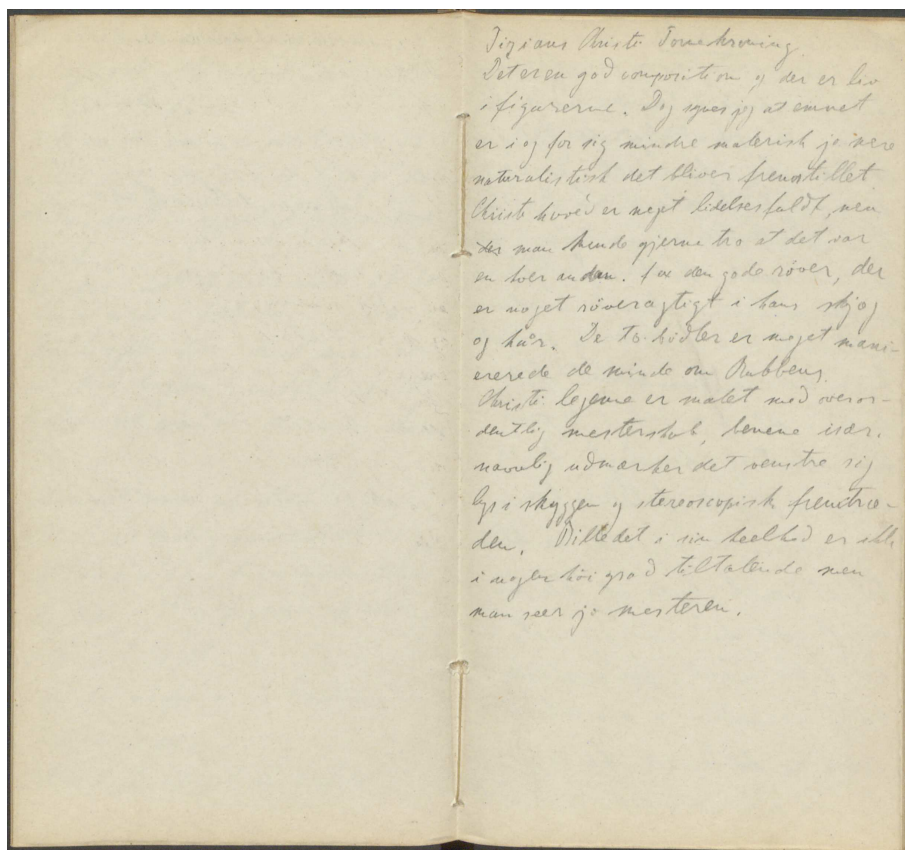 Tizians Christi Tornekroning
Det er en god composition og der er liv
i figurerne. Dog synes jeg at emnet
er i og for sig mindre malerisk jo mere
naturalistisk det bliver fremstillet
Christi hoved er meget lidelsesfuldt, men
man kunde gjerne tro at det var
en hver anden. den gode røver, der
er noget røveragtigt i hans skjæg
og hår. De to bødler er meget mani-
ererede de minde om Rubbens.
Christi legeme er malet med overor-
dentlig mesterskab, benene især.
navnlig udmærker det venstre sig
lys i skyggen og stereoscopisk fremtræ-
den. Billedet i sin heelhed er ikke
i nogen høi grad tiltalende men
man seer jo mesteren.